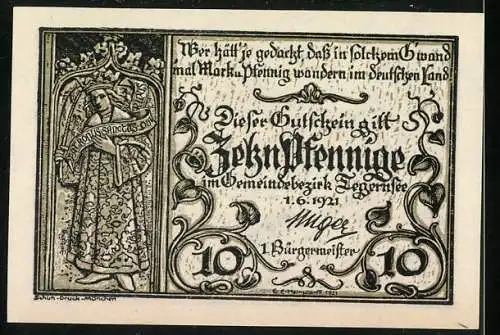 Wer hätt' je gedacht, daß in solchem Gwand
mal Mark u. Pfennig wandern im deutschen Land.
Dieser Gutschein gilt
Zehn Pfennige
im Gemeindebezirk Tegernsee
1.6.1921
1. Bürgermeister
10 10
Schuh-Druck-München